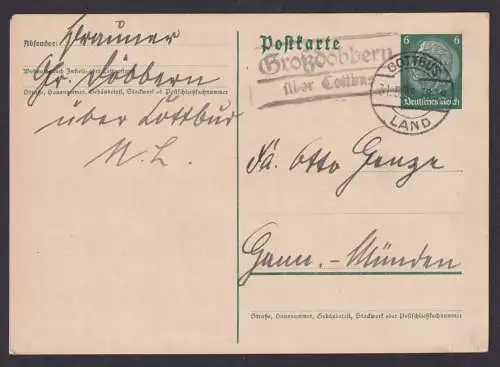 Absender: Brauner
Gr. Döbbern
Straße, Hausnummer, Gebäudeteil, Stockwerk od. Postschließfachnummer
über Cottbus
N. L.
Postkarte
Großdöbbern
über Cottbus
COTTBUS
LAND
6 6
Deutsches Reich
Fa. Otto
Hann.-Münden
Straße, Hausnummer, Gebäudeteil, Stockwerk oder Postschließfachnummer